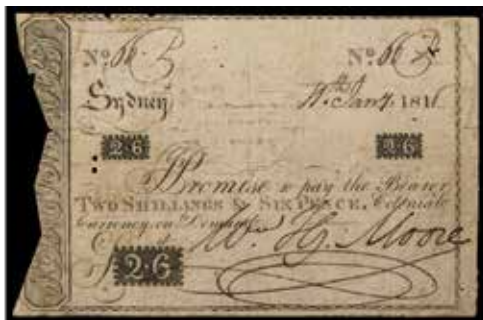 No. 60 No. 60
Sydney Jany. 181
2·6 2·6
Promise to pay the Bearer
TWO SHILLINGS & SIX PENCE, Colonial
Currency on Demand
Wm. Hy. Moore
£2·6